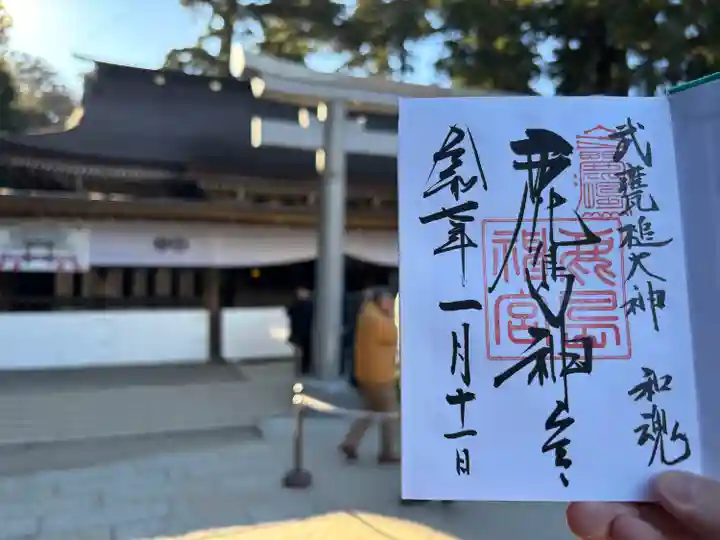 武甕槌大神 和魂
鹿島神宮
令和七年一月十一日
鹿島神宮